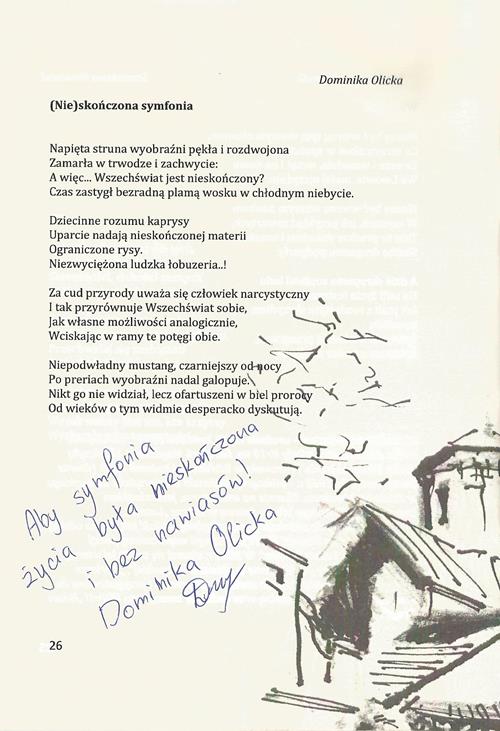 Dominika Olicka
(Nie)skończona symfonia
Napięta struna wyobraźni pękła i rozdwojona
Zamarła w trwodze i zachwycie:
A więc... Wszechświat jest nieskończony?
Czas zastygł bezradną plamą wosku w chłodnym niebycie.
Dziecinne rozumu kaprysy
Uparcie nadają nieskończonej materii
Ograniczone rysy.
Niezwyciężona ludzka łobuzeria..!
Za cud przyrody uważa się człowiek narcystyczny
I tak przyrównuje Wszechświat sobie,
Jak własne możliwości analogicznie,
Wciskając w ramy te potęgi obie.
Niepodwładny mustang, czarniejszy od nocy
Po preriach wyobraźni nadal galopuje.
Nikt go nie widział, lecz ofartuszeni w biel prorocy
Od wieków o tym widmie desperacko dyskutują.
Aby symfonia
życia była nieskończona
i bez nawiasów!
Dominika Olicka
26